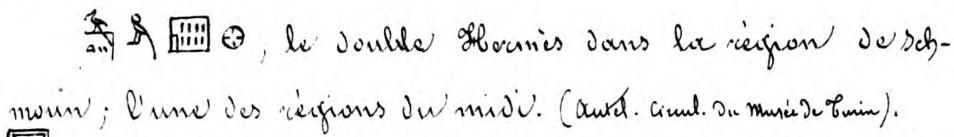 , le double Hermès dans la région de Sch-
moun ; l'une des régions du midi. (Autel. circul. du Musée de Turin).